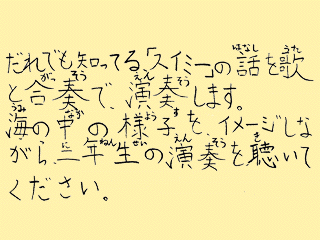 だれでも知ってる、「スイミー」の話を歌
と合奏で、演奏します。
海の中の様子を、イメージしな
がら、二年生の演奏を聴いて
ください。